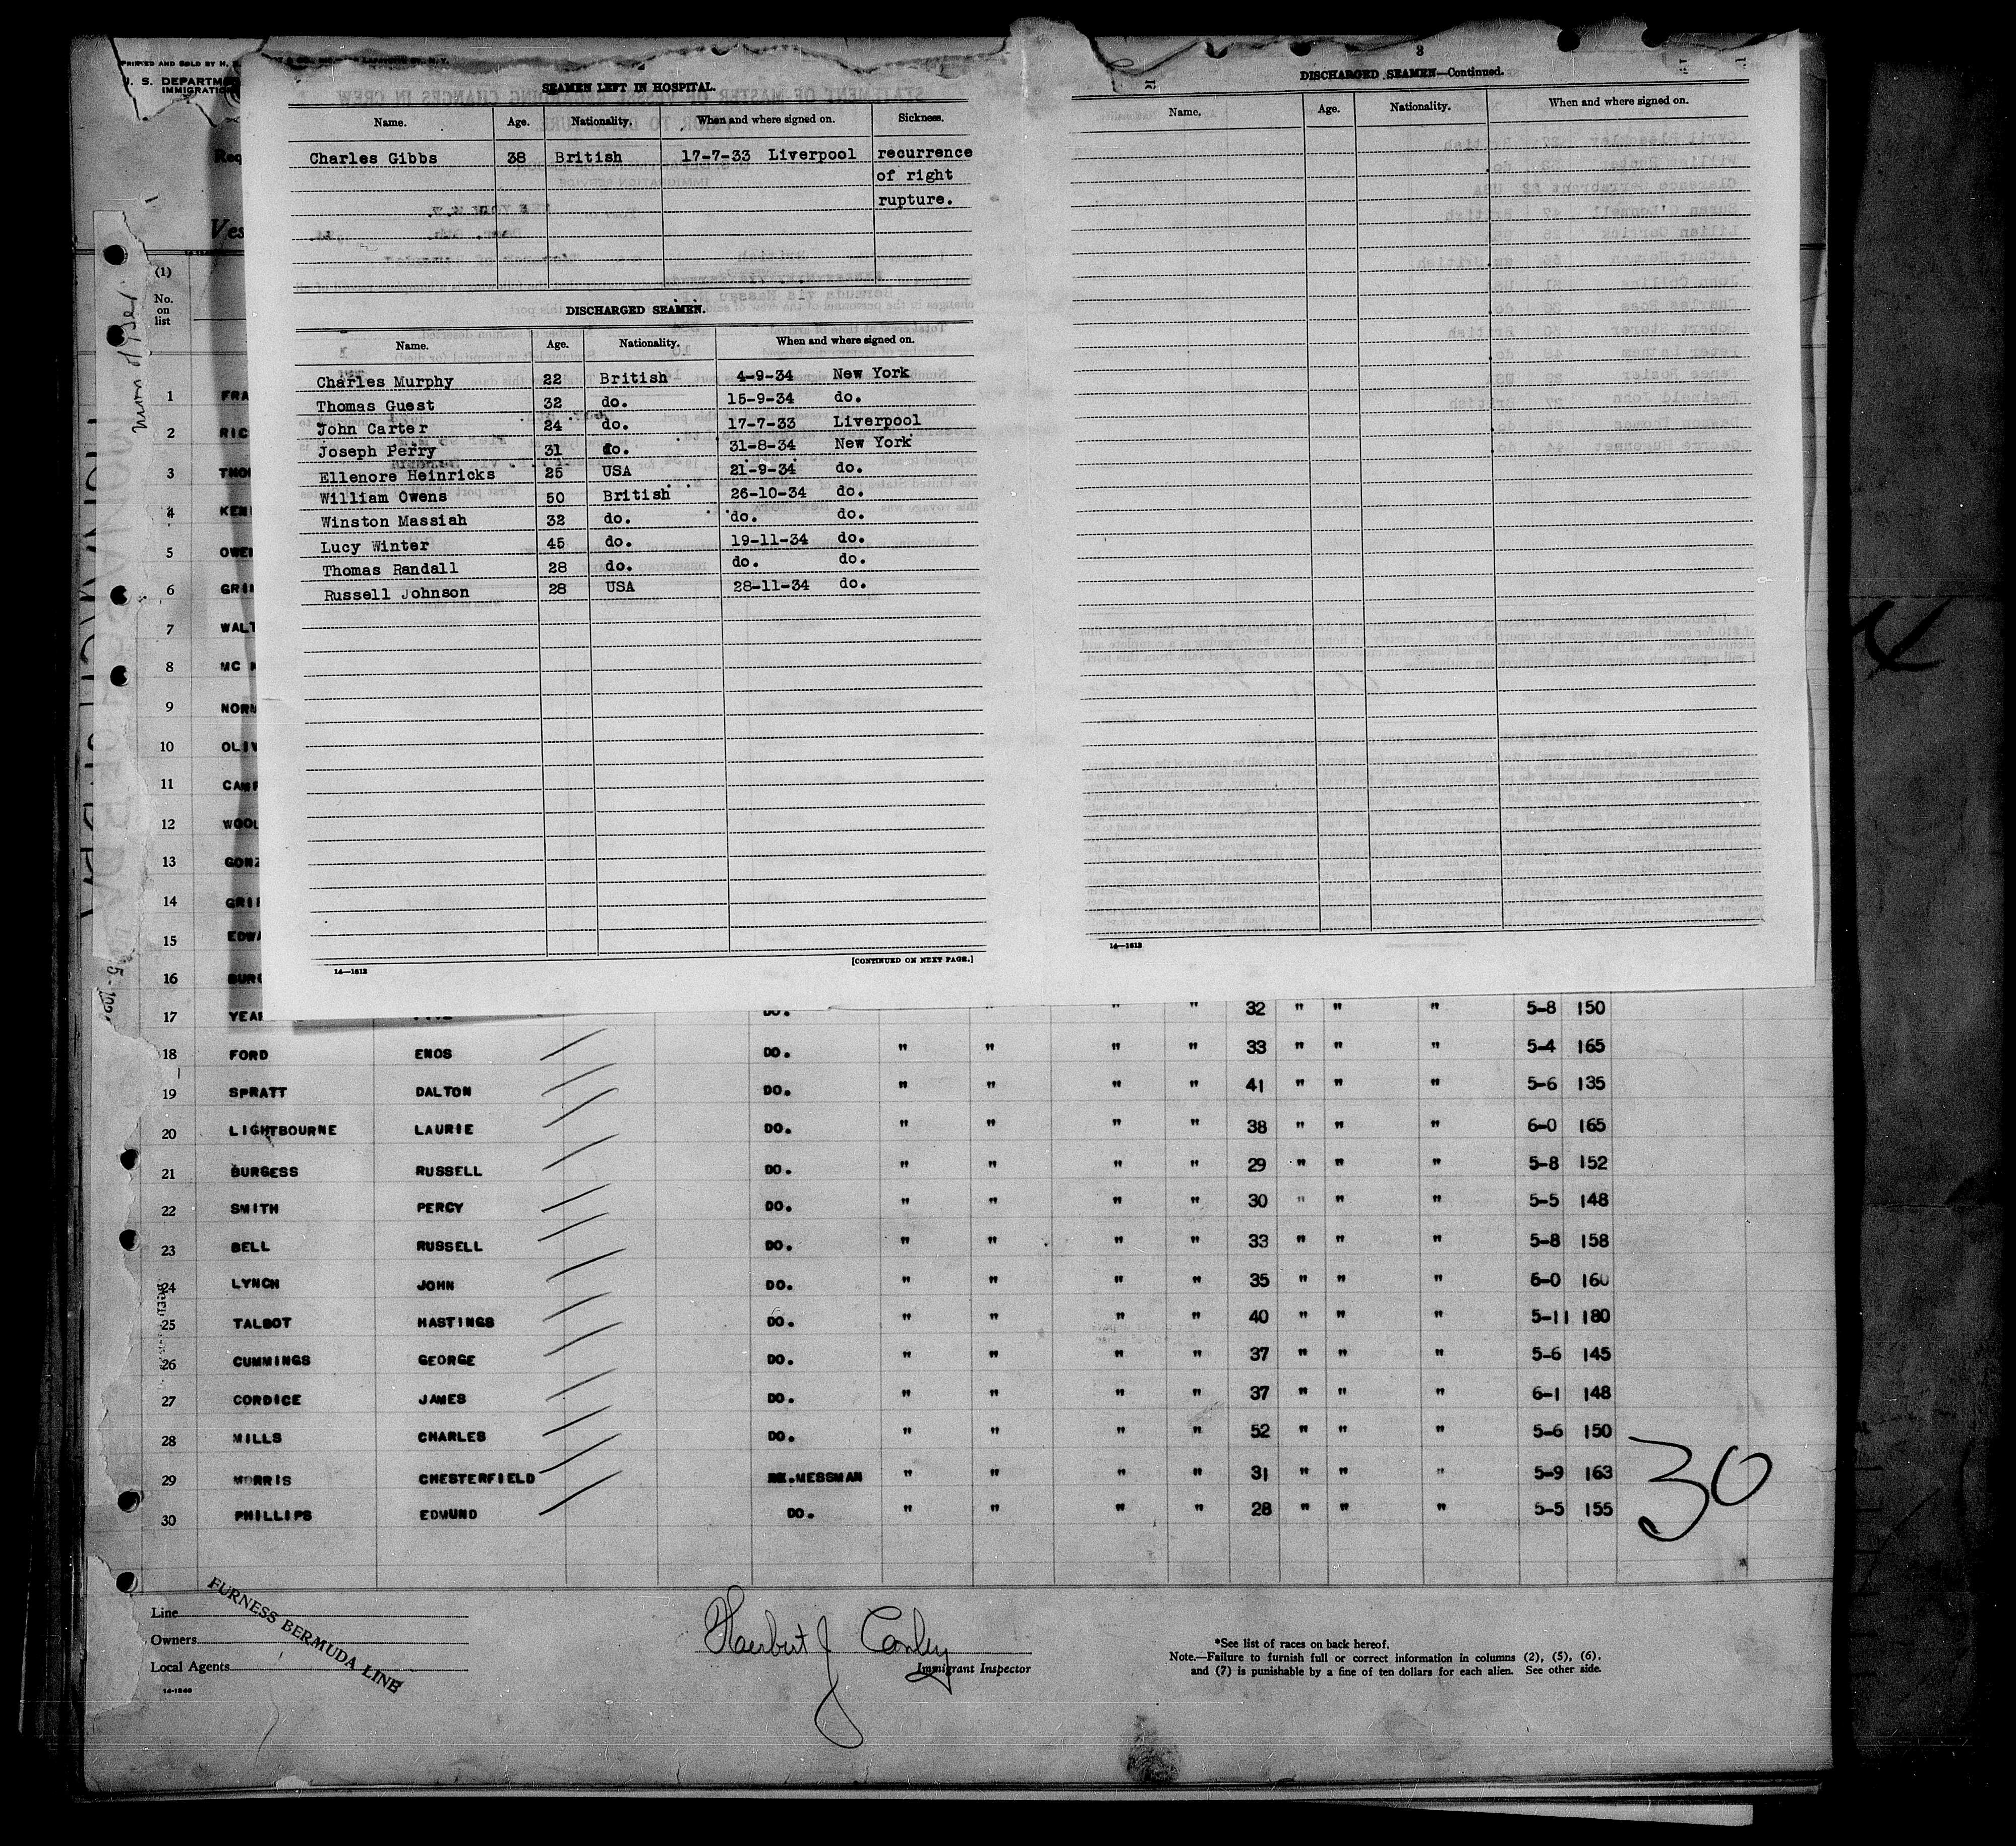 PRINTED AND SOLD BY H.
U. S. DEPARTM
IMMIGRATION
Req
Ves
SEAMEN LEFT IN HOSPITAL.
Name. Age. Nationality. When and where signed on. Sickness.
Charles Gibbs 38 British 17-7-33 Liverpool recurrence
of right
rupture.
DISCHARGED SEAMEN.
Name. Age. Nationality. When and where signed on.
Charles Murphy 22 British 4-9-34 New York
Thomas Guest 32 do. 15-9-34 do.
John Carter 24 do. 17-7-33 Liverpool
Joseph Perry 31 do. 31-8-34 New York
Ellenore Heinricks 25 USA 21-9-34 do.
William Owens 50 British 26-10-34 do.
Winston Massiah 32 do. do. do.
Lucy Winter 45 do. 19-11-34 do.
Thomas Randall 28 do. do. do.
Russell Johnson 28 USA 28-11-34 do.
14—1613
[CONTINUED ON NEXT PAGE.]
3
DISCHARGED SEAMEN—Continued.
Name. Age. Nationality. When and where signed on.
14—1613
(1)
No.
on
list
1 FRA
2 RIC
3 THO
4 KEN
5 OWE
6 GRI
7 WALT
8 MC
9 NORM
10 OLIV
11 CAMP
12 WOOL
13 GONZ
14 GRIF
15 EDWA
16 BURG
17 YEAR DO. " " " " 32 " " " 5-8 150
18 FORD ENOS DO. " " " " 33 " " " 5-4 165
19 SPRATT DALTON DO. " " " " 41 " " " 5-6 135
20 LIGHTBOURNE LAURIE DO. " " " " 38 " " " 6-0 165
21 BURGESS RUSSELL DO. " " " " 29 " " " 5-8 152
22 SMITH PERCY DO. " " " " 30 " " " 5-5 148
23 BELL RUSSELL DO. " " " " 33 " " " 5-8 158
24 LYNCH JOHN DO. " " " " 35 " " " 6-0 160
25 TALBOT HASTINGS DO. " " " " 40 " " " 5-11 180
26 CUMMINGS GEORGE DO. " " " " 37 " " " 5-6 145
27 CORDICE JAMES DO. " " " " 37 " " " 6-1 148
28 MILLS CHARLES DO. " " " " 52 " " " 5-6 150
29 MORRIS CHESTERFIELD MESSMAN " " " " 31 " " " 5-9 163
30 PHILLIPS EDMUND DO. " " " " 28 " " " 5-5 155
30
Line
Owners
Local Agents
FURNESS BERMUDA LINE
14-1240
Herbert J Conley
Immigrant Inspector
*See list of races on back hereof.
Note.—Failure to furnish full or correct information in columns (2), (5), (6),
and (7) is punishable by a fine of ten dollars for each alien. See other side.